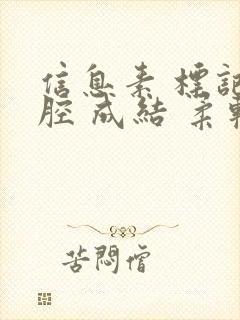 信息素 標記
腔 成結 柔
苦悶僧